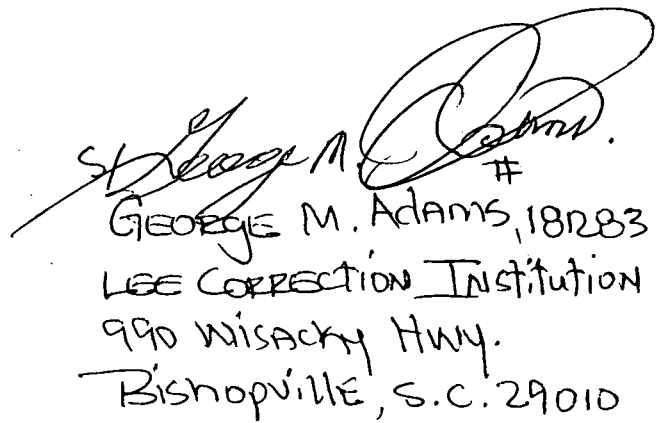 s/ George M. Adams.
#
GEORGE M. Adams, 181283
LEE CORRECTION INSTITUTION
990 WISACKY HWY.
BISHOPVILLE, S.C. 29010